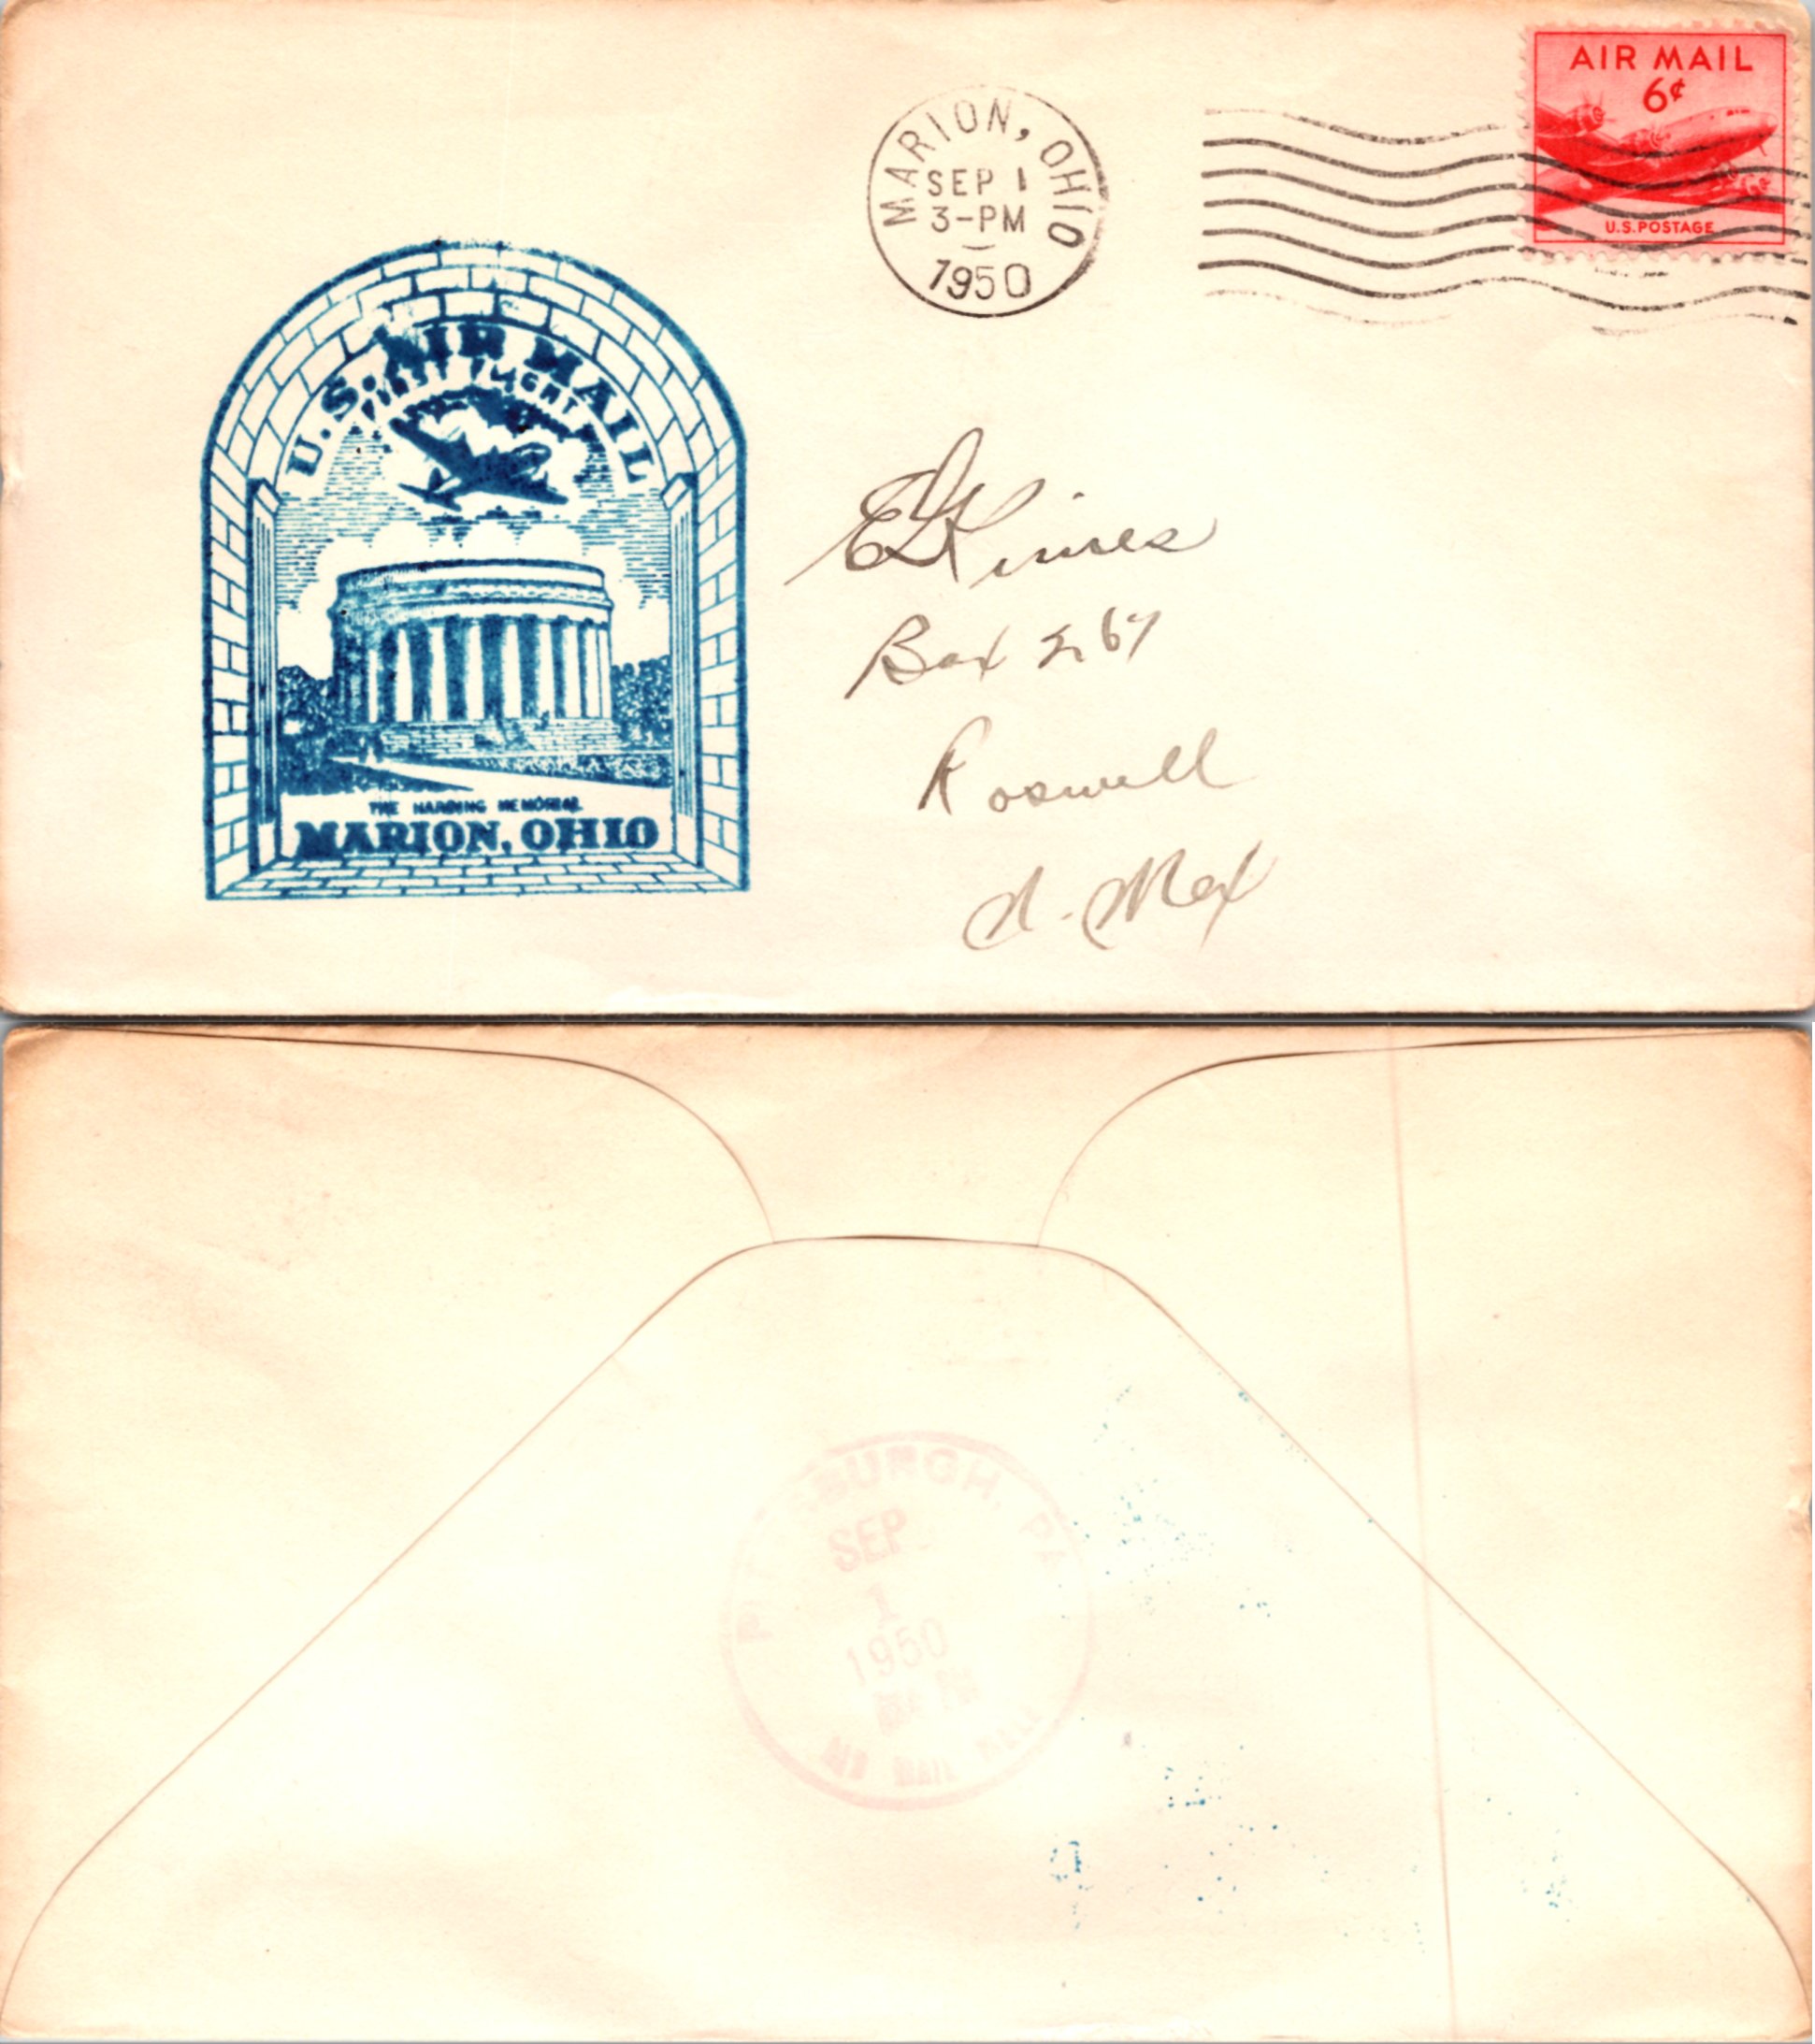 AIR MAIL
6¢
U.S. POSTAGE
MARION, OHIO
SEP 1
3-PM
1950
U.S. AIR MAIL
FIRST FLIGHT
THE HARDING MEMORIAL
MARION, OHIO
Box
Roswell
N. Mex
PITTSBURGH, PA
SEP
1
1950
AIR MAIL